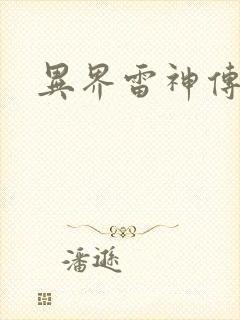 異界雷神傳
潘遜